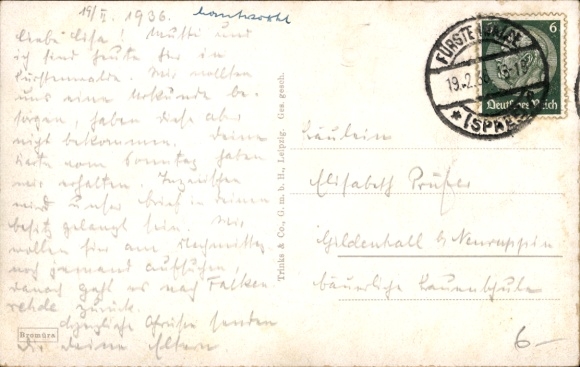 19/II. 1936.
Liebe Lisa! Mutti und
ich sind heute hier in
Fürstenwalde. Wir wollten
uns eine Urkunde be-
sorgen, haben diese aber
nicht bekommen. Deine
Karte vom Sonntag haben
wir erhalten. Inzwischen
wird unser Brief in deinen
Besitz gelangt sein. Wir
wollen hier am Nachmittag
noch jemand aufsuchen,
danach geht es nach Falken
rehde zurück.
Herzliche Grüße senden
dir deine Eltern
Bromüra
Trinks & Co., G. m. b. H., Leipzig. Ges. gesch.
FÜRSTENWALDE
19.2.36
* (SPREE)
6
Deutsches Reich
Fräulein
Elisabeth Prüfer
Gildenhall b/ Neuruppin
bäuerliche Frauenschule
6-